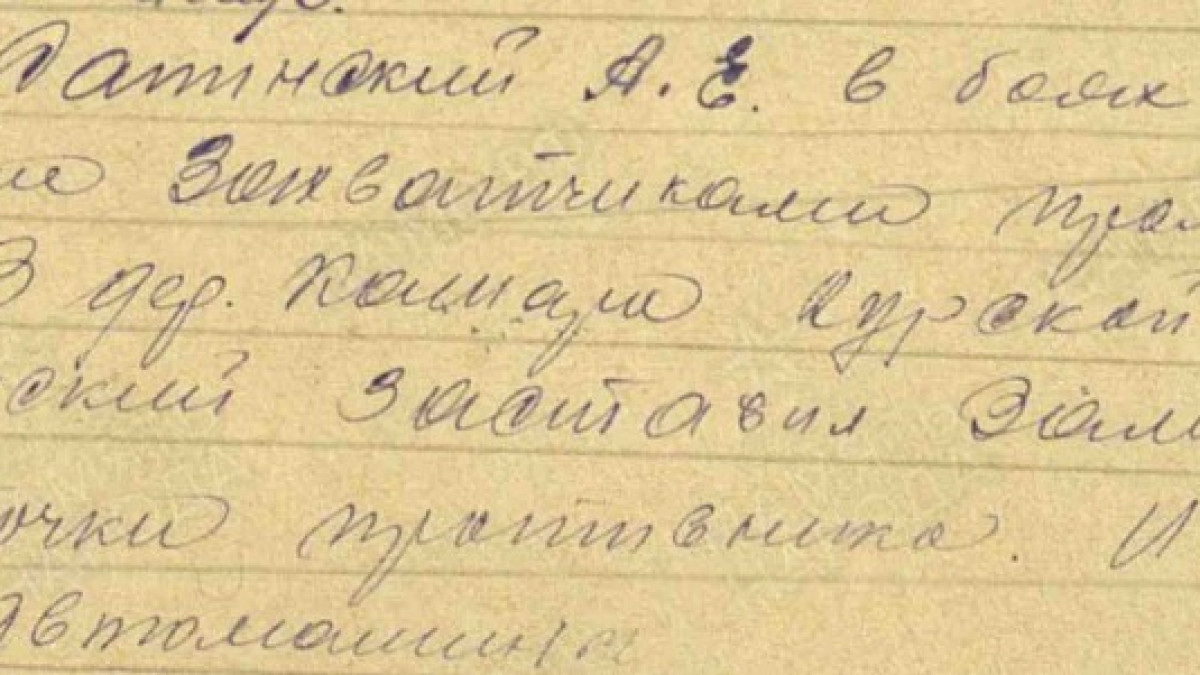 Батинский А.Е. в боях
ми Захватчиками про
В дер. Комары Курской
ский заставил Зам
очки противника. И
Автомашин